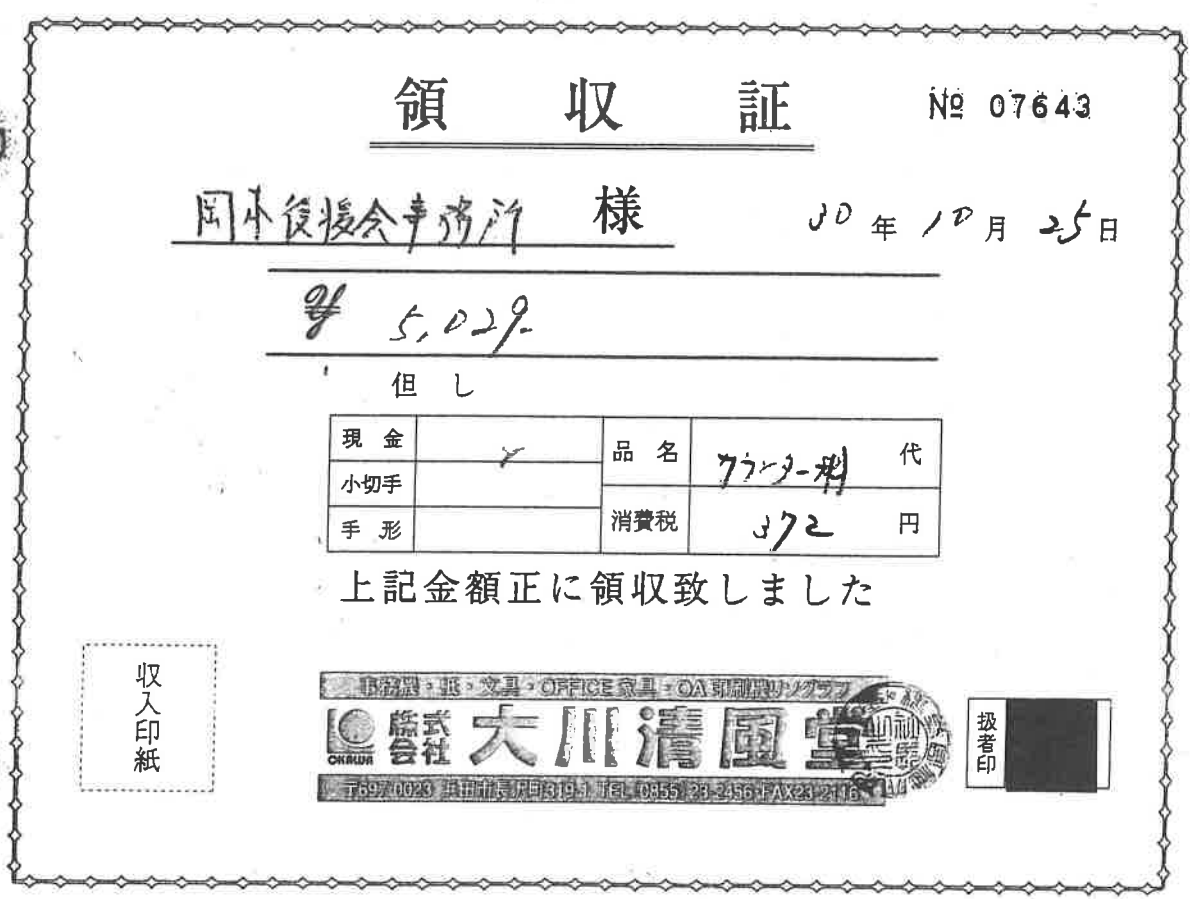 領収証
№ 07643
岡本後援会事務所 様
30年10月25日
¥ 5,029-
但し
現金
小切手
手形
品名 カウンター料 代
消費税 372 円
上記金額正に領収致しました
収入印紙
事務機・紙・文具・OFFICE家具・OA印刷機リソグラフ
OKAWA 株式会社 大川清風堂
〒697-0023 浜田市長沢町319-1 TEL 0855-23-2456 FAX23-2116
扱者印